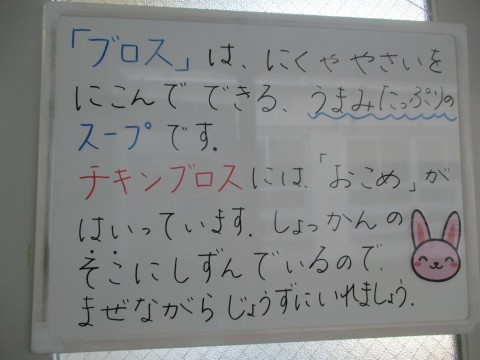 「ブロス」は、にくややさいを
にこんでできる、うまみたっぷりの
スープです。
チキンブロスには、「おこめ」が
はいっています。しょっかんの
そこにしずんでいるので、
まぜながらじょうずにいれましょう。